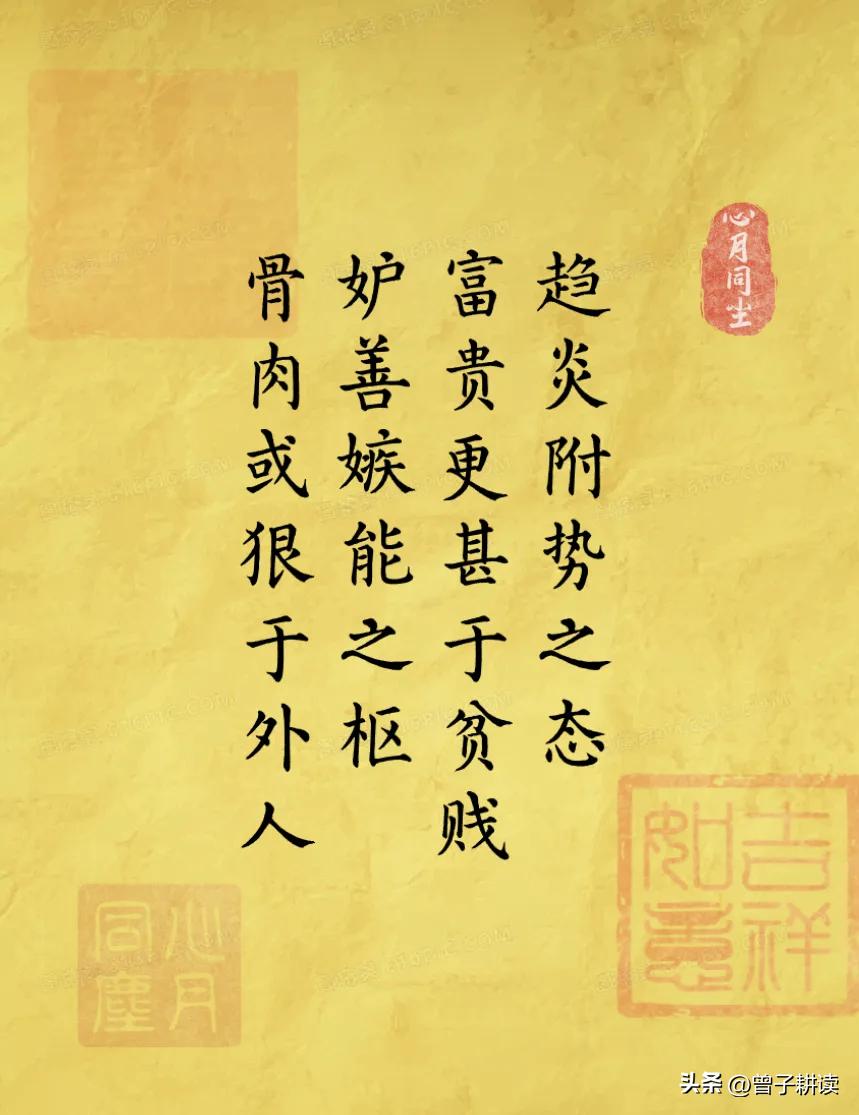 趋炎附势之态
富贵更甚于贫贱
妒善嫉能之枢
骨肉或狠于外人
心月同尘
吉祥如意
心月同塵
头条 @曾子耕读